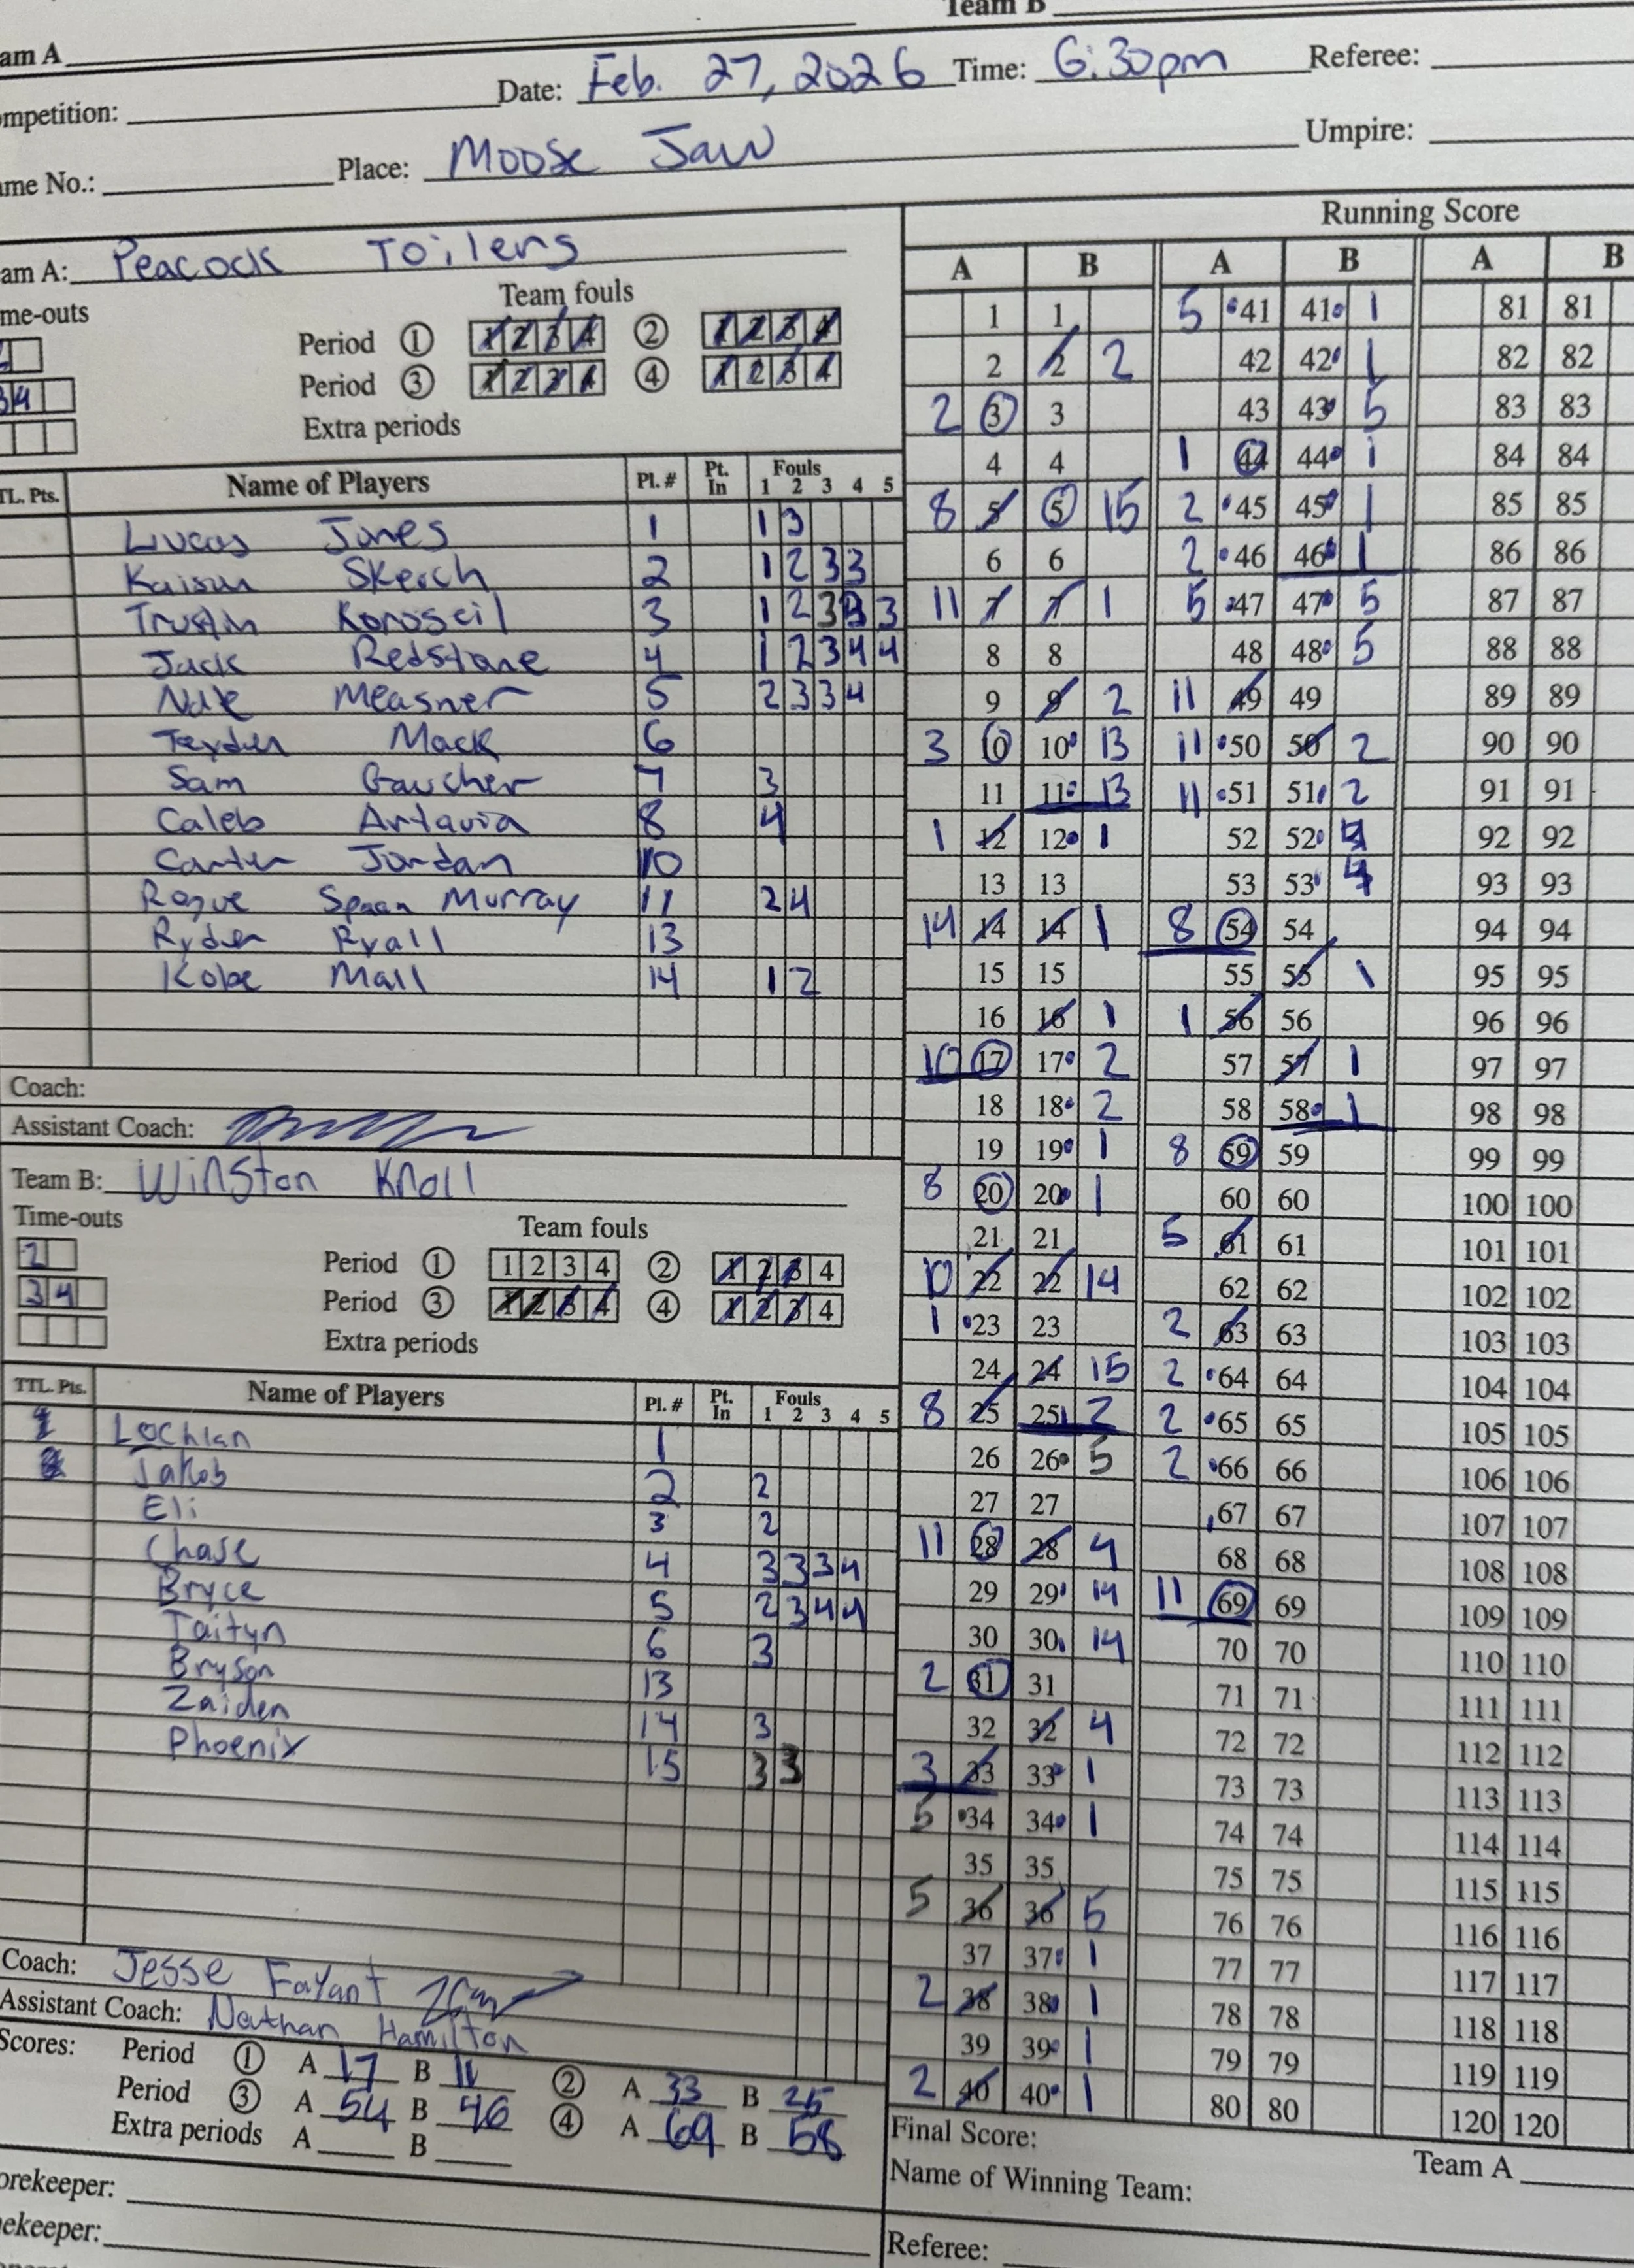 Team B
am A
Date: Feb. 27, 2026 Time: 6:30pm Referee:
ompetition:
ame No.: Place: Moose Jaw Umpire:
Running Score
am A: Peacock Toilers
me-outs Team fouls
Period ① 1 2 3 4 ② 1 2 3 4
34 Period ③ 1 2 3 4 ④ 1 2 3 4
Extra periods
TL. Pts. Name of Players Pl. # Pt. In Fouls 1 2 3 4 5
Lucas Jones 1 1 3
Kaison Skerch 2 1 2 3 3
Koroscil 3 1 2 3 3 3
Jack Redstone 4 1 2 3 4 4
Measner 5 2 3 3 4
Mack 6
Sam Gaucher 7 3
Caleb Artavia 8 4
Carter Jordan 10
Rogue Spaan Murray 11 2 4
Ryder Ryall 13
Kobe Mall 14 1 2
Coach:
Assistant Coach:
Team B: Winston Knoll
Time-outs Team fouls
2 Period ① 1 2 3 4 ② 1 2 3 4
3 4 Period ③ 1 2 3 4 ④ 1 2 3 4
Extra periods
TTL. Pts. Name of Players Pl. # Pt. In Fouls 1 2 3 4 5
Lochlan 1
Jakob 2 2
Eli 3 2
Chase 4 3 3 3 4
Bryce 5 2 3 4 4
Taityn 6 3
Bryson 13
Zaiden 14 3
Phoenix 15 3 3
Coach: Jesse Fayant
Assistant Coach: Nathan Hamilton
Scores: Period ① A 17 B 11 ② A 33 B 25
Period ③ A 54 B 46 ④ A 69 B 58
Extra periods A B
orekeeper:
ekeeper:
A B A B A B
1 1 5 41 41 1 81 81
2 2 2 42 42 1 82 82
2 3 3 43 43 5 83 83
4 4 1 44 44 1 84 84
8 5 5 15 2 45 45 1 85 85
6 6 2 46 46 1 86 86
11 7 7 1 5 47 47 5 87 87
8 8 48 48 5 88 88
9 9 2 11 49 49 89 89
3 10 10 13 11 50 50 2 90 90
11 11 13 11 51 51 2 91 91
1 12 12 1 52 52 4 92 92
13 13 53 53 4 93 93
14 14 14 1 8 54 54 94 94
15 15 55 55 1 95 95
16 16 1 1 56 56 96 96
10 17 17 2 57 57 1 97 97
18 18 2 58 58 1 98 98
19 19 1 8 59 59 99 99
8 20 20 1 60 60 100 100
21 21 5 61 61 101 101
10 22 22 14 62 62 102 102
1 23 23 2 63 63 103 103
24 24 15 2 64 64 104 104
8 25 25 2 2 65 65 105 105
26 26 5 2 66 66 106 106
27 27 67 67 107 107
11 28 28 4 68 68 108 108
29 29 14 11 69 69 109 109
30 30 14 70 70 110 110
2 31 31 71 71 111 111
32 32 4 72 72 112 112
3 33 33 1 73 73 113 113
5 34 34 1 74 74 114 114
35 35 75 75 115 115
5 36 36 5 76 76 116 116
37 37 1 77 77 117 117
2 38 38 1 78 78 118 118
39 39 1 79 79 119 119
2 40 40 1 80 80 120 120
Final Score: Team A
Name of Winning Team:
Referee: